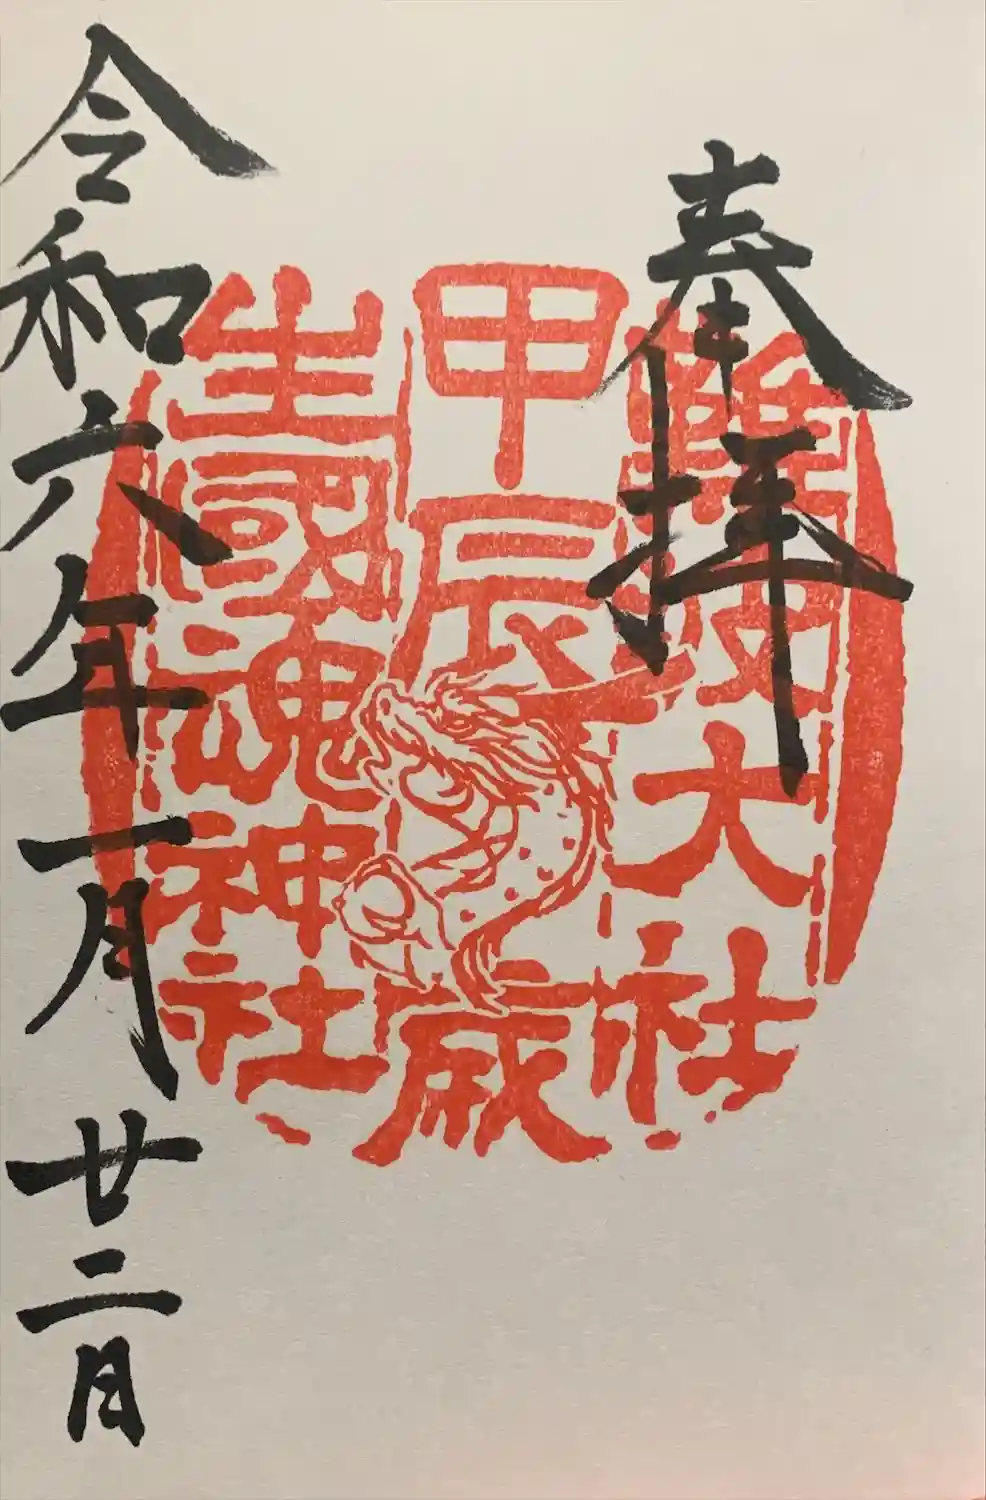 奉拝
難波大社
甲辰歳
生國魂神社
令和六年一月廿二日